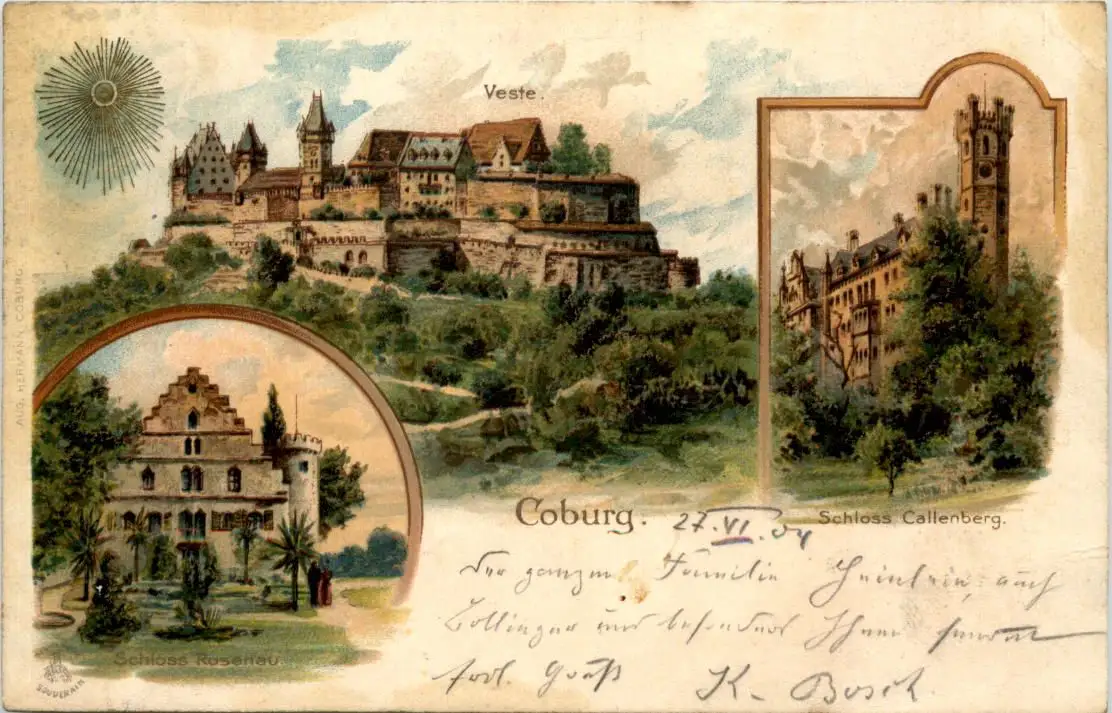 Veste.
AUG. HERMANN, COBURG.
Coburg. 27.VI.04
Schloss Callenberg.
Der ganzen Familie Heinlein, auch
Zollinger und besonders Ihnen
Schloss Rosenau.
frdl. Gruß K. Bosch.
SOUVERAIN